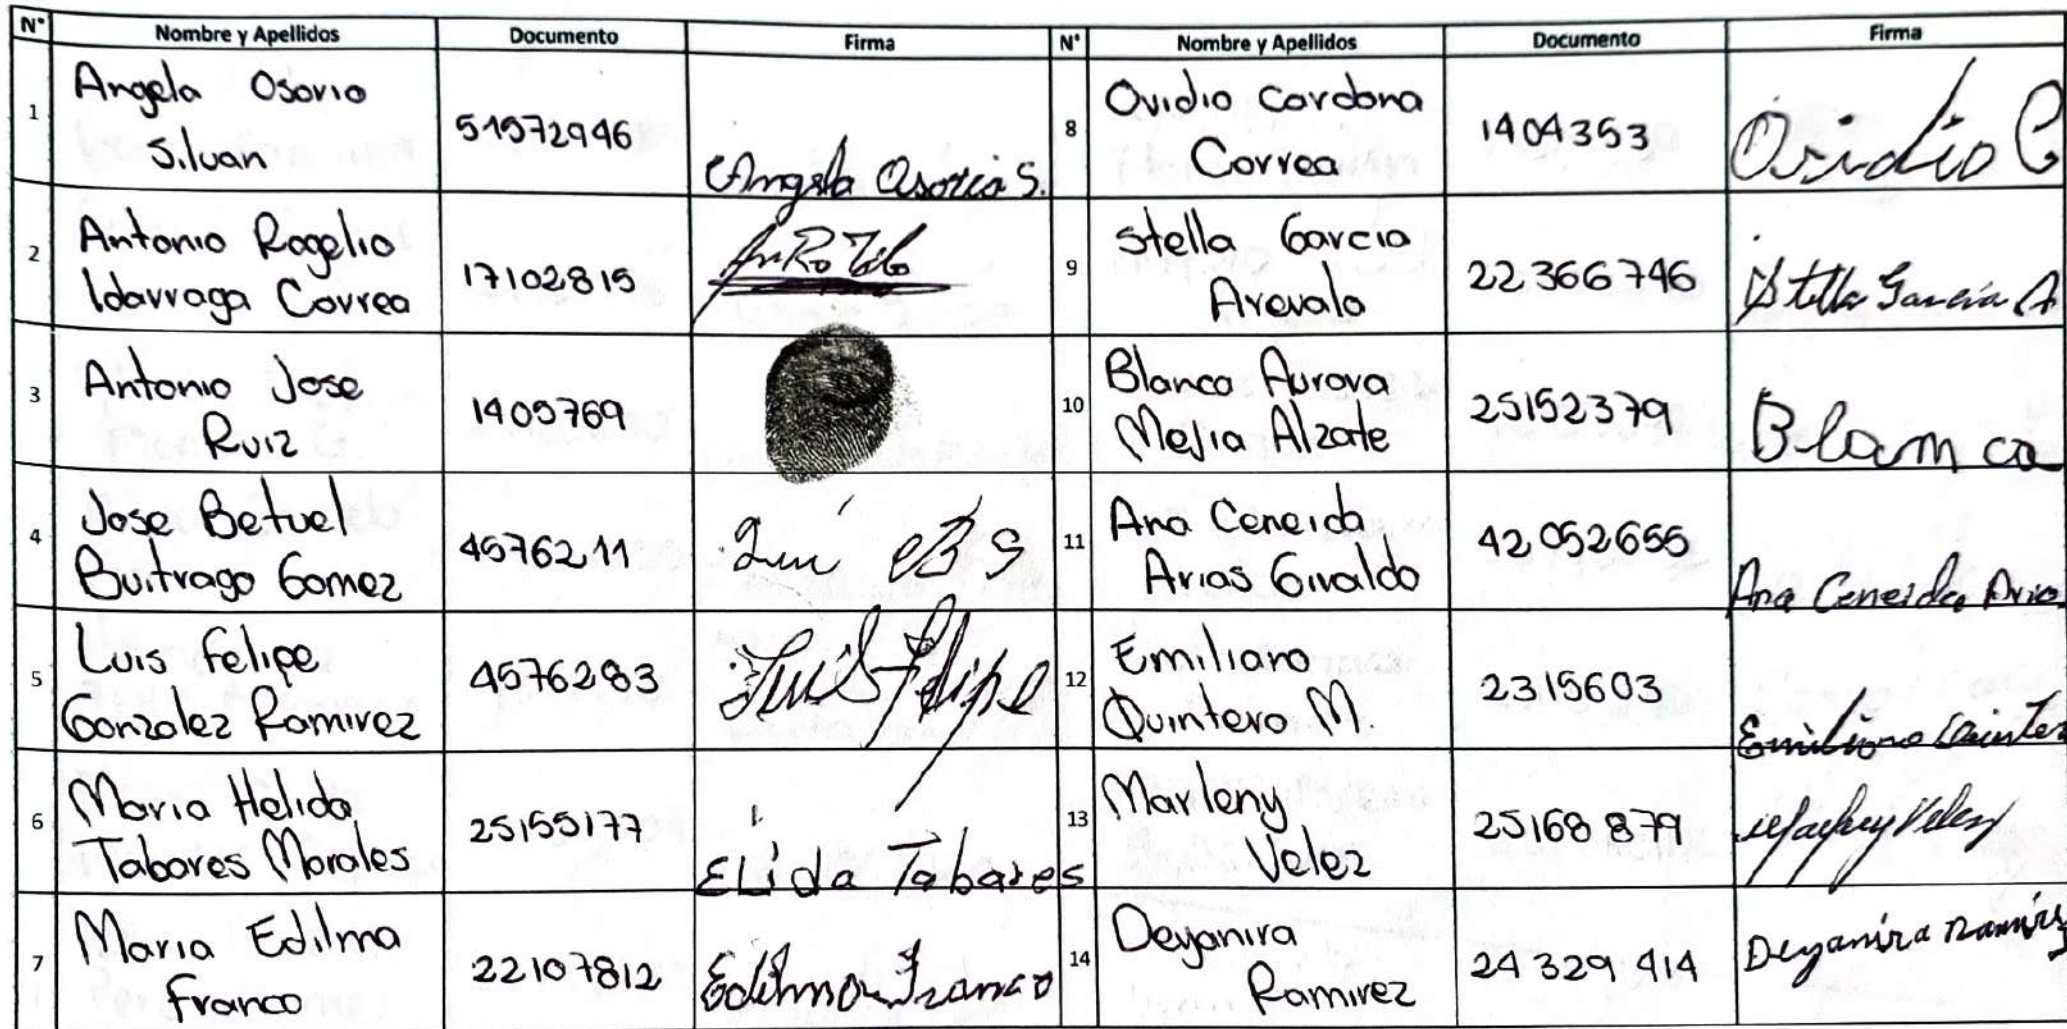 N° Nombre y Apellidos Documento Firma N° Nombre y Apellidos Documento Firma
1
Angela Osorio
Siluan
51572946
Angela Osorio S.
8
Ovidio Cardona
Correa
1404353
Ovidio C
2
Antonio Rogelio
Idarraga Correa
17102815
9
Stella Garcia
Arevalo
22366746
Stella Garcia A
3
Antonio Jose
Ruiz
1405769
10
Blanca Aurora
Mejia Alzate
25152379
Blamca
4
Jose Betuel
Buitrago Gomez
4576211
11
Ana Ceneida
Arias Giraldo
42052655
Ana Ceneida Aria
5
Luis Felipe
Gonzalez Ramirez
4576283
Luis Felipe
12
Emiliano
Quintero M.
2315603
Emiliano Quinter
6
Maria Helida
Tabares Morales
25155177
ELida Tabares
13
Marleny
Velez
25168879
Velez
7
Maria Edilma
Franco
22107812
Edilma Franco
14
Deyanira
Ramirez
24329414
Deyanira Ramirez